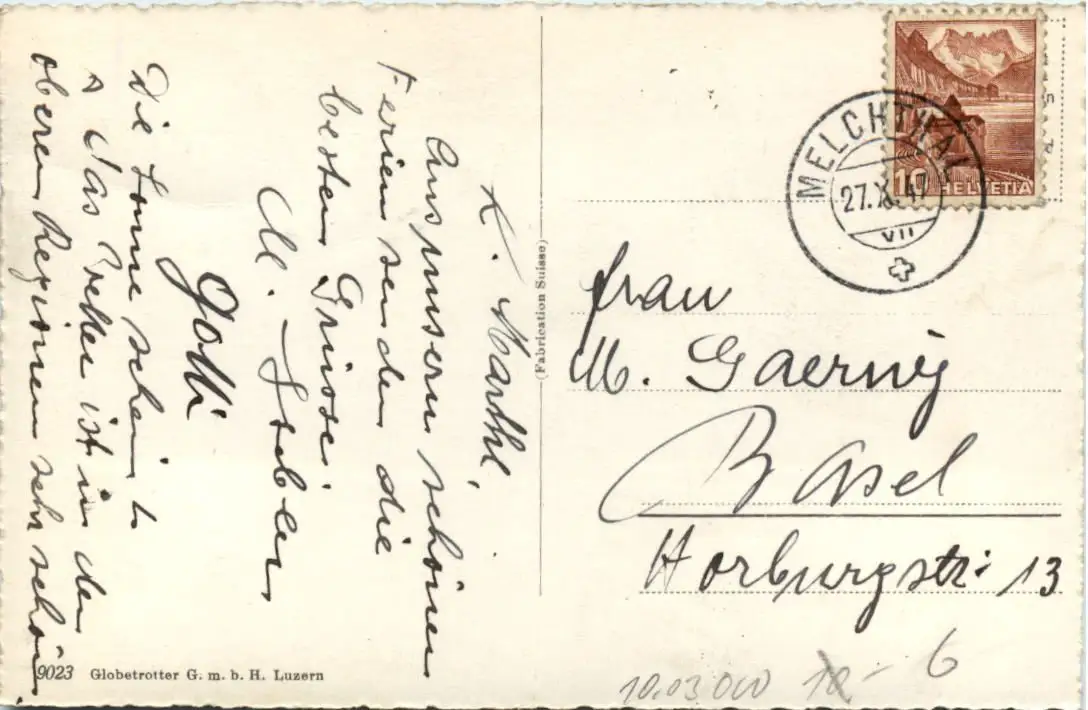 K. Marthi,
Aus unsern schönen
Ferien senden die
besten Grüsse:
M.
Gotti
Die Sonne scheint
& das Wetter ist in den
oberen Regionen sehr schön
(Fabrication Suisse)
9023 Globetrotter G. m. b. H. Luzern
MELCHTHAL
27.X.47
VII
10 HELVETIA
Frau
M. Gaerny
Basel
Horburgstr. 13
10.03 000 10- 6